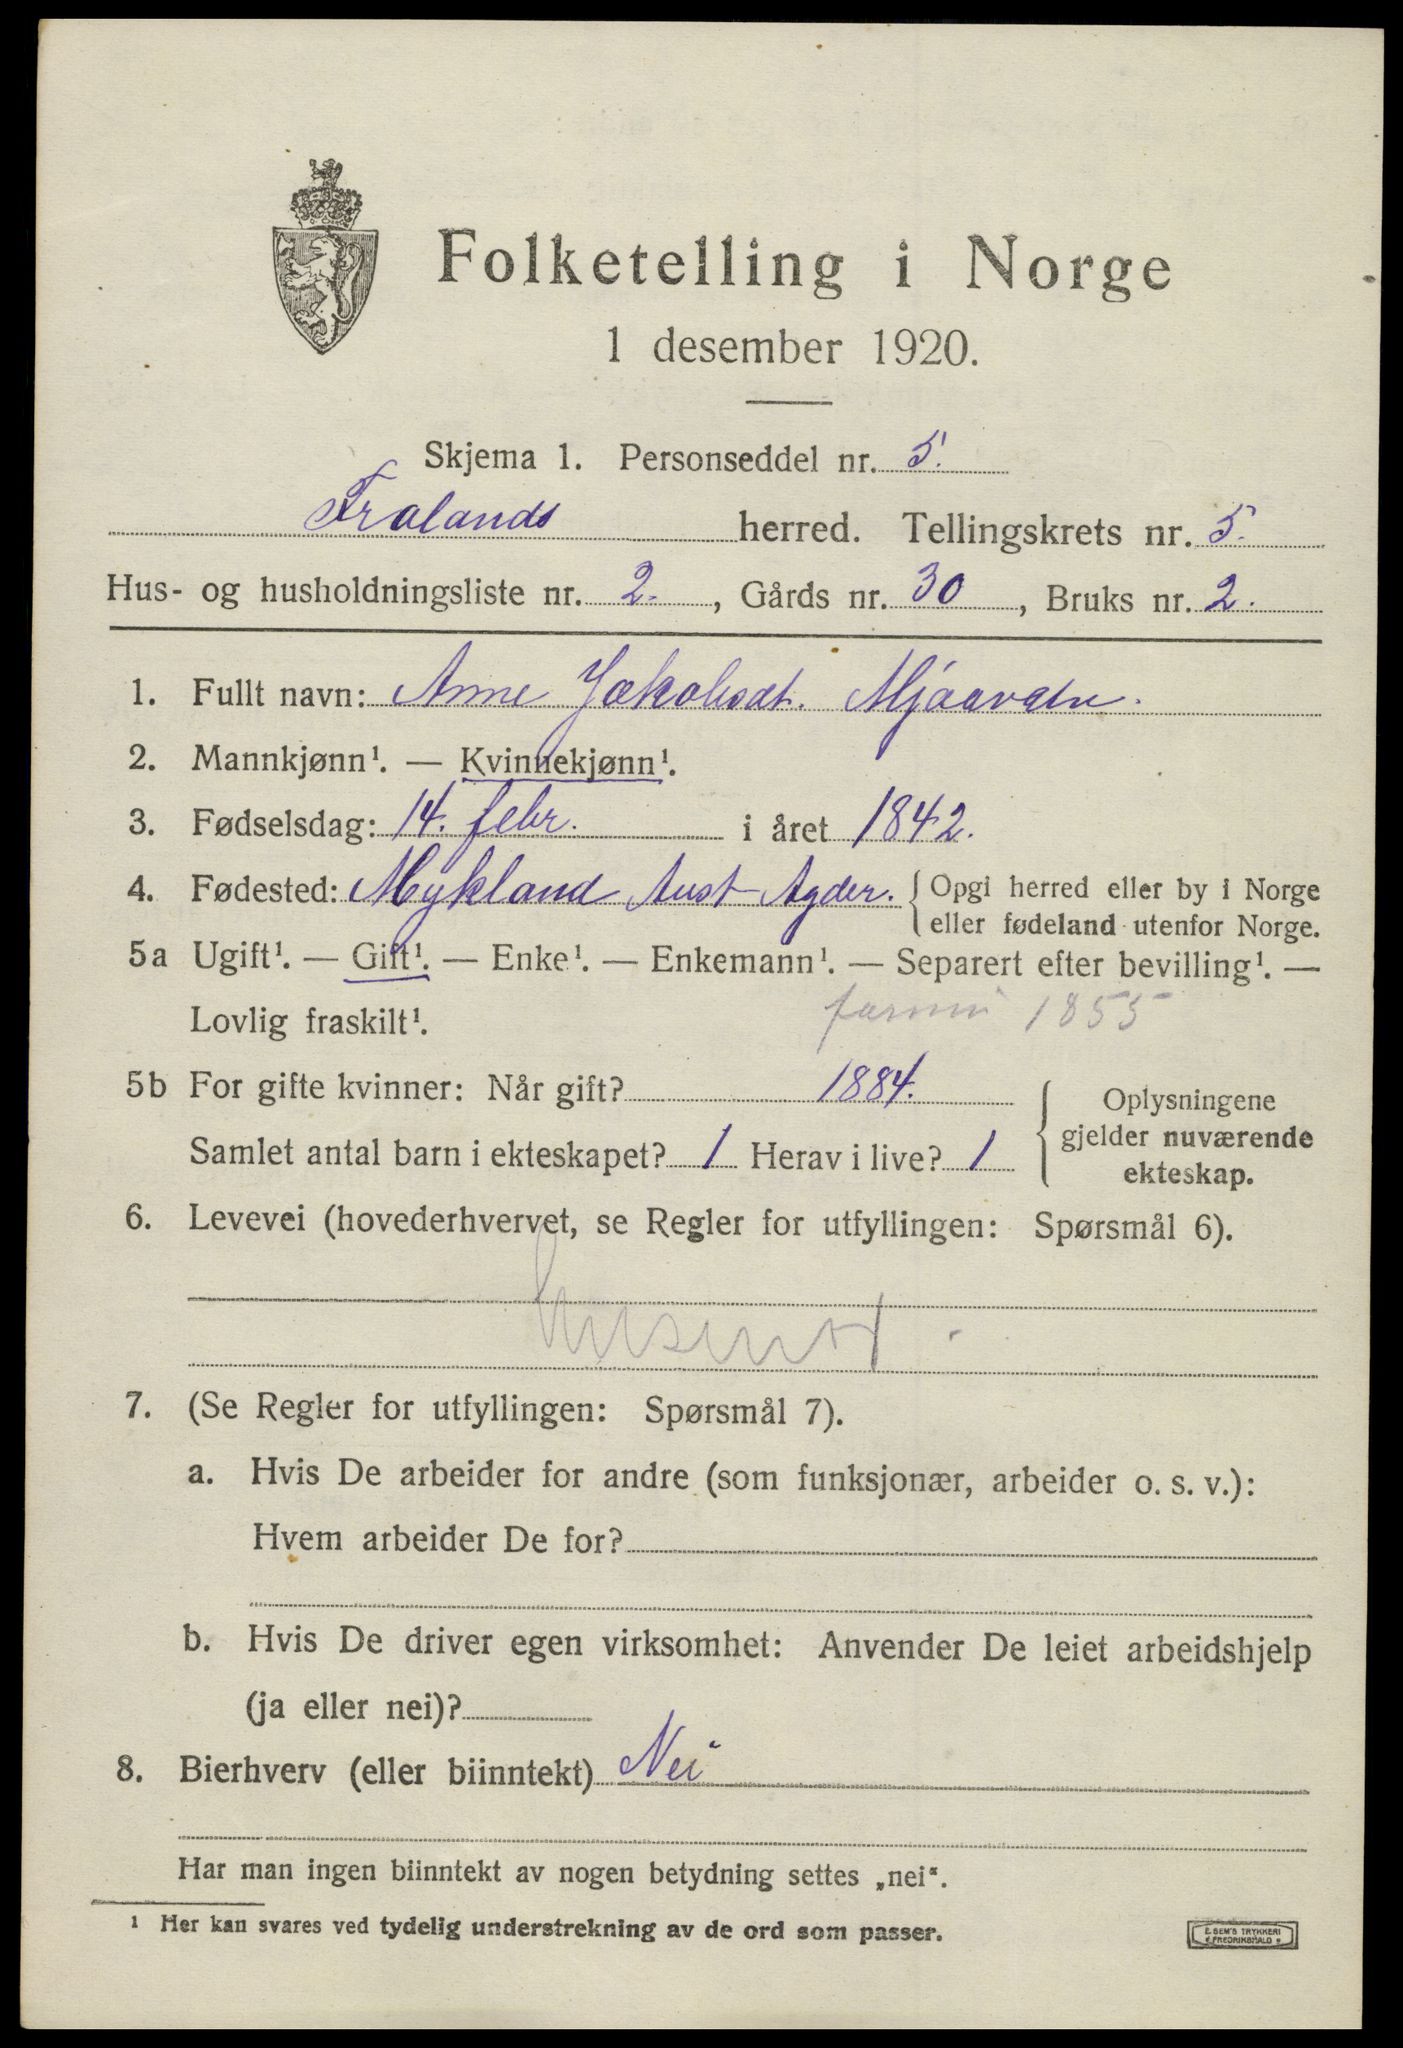 Folketelling i Norge
1 desember 1920.
Skjema 1. Personseddel nr. 5.
Frolands herred. Tellingskrets nr. 5.
Hus- og husholdningsliste nr. 2. , Gårds nr. 30 , Bruks nr. 2.
1. Fullt navn: Anne Jakobsdt. Mjaavatn.
2. Mannkjønn¹. — Kvinnekjønn¹.
3. Fødselsdag: 14. febr. i året 1842.
4. Fødested: Mykland Aust-Agder. { Opgi herred eller by i Norge
eller fødeland utenfor Norge.
5a Ugift¹. — Gift¹. — Enke¹. — Enkemann¹. — Separert efter bevilling¹. —
Lovlig fraskilt¹. 1855
5b For gifte kvinner: Når gift? 1884.
Samlet antal barn i ekteskapet? 1 Herav i live? 1
Oplysningene
gjelder nuværende
ekteskap.
6. Levevei (hovederhvervet, se Regler for utfyllingen: Spørsmål 6).
7. (Se Regler for utfyllingen: Spørsmål 7).
a. Hvis De arbeider for andre (som funksjonær, arbeider o. s. v.):
Hvem arbeider De for?
b. Hvis De driver egen virksomhet: Anvender De leiet arbeidshjelp
(ja eller nei)?
8. Bierhverv (eller biinntekt) Nei
Har man ingen biinntekt av nogen betydning settes „nei“.
1 Her kan svares ved tydelig understrekning av de ord som passer.
E. SEM'S TRYKKERI
FREDRIKSHALD